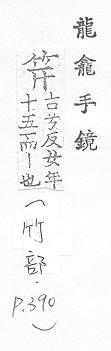 龍龕手鏡
笄
古兮反女年
十五而丨也
（竹部．
P.390）